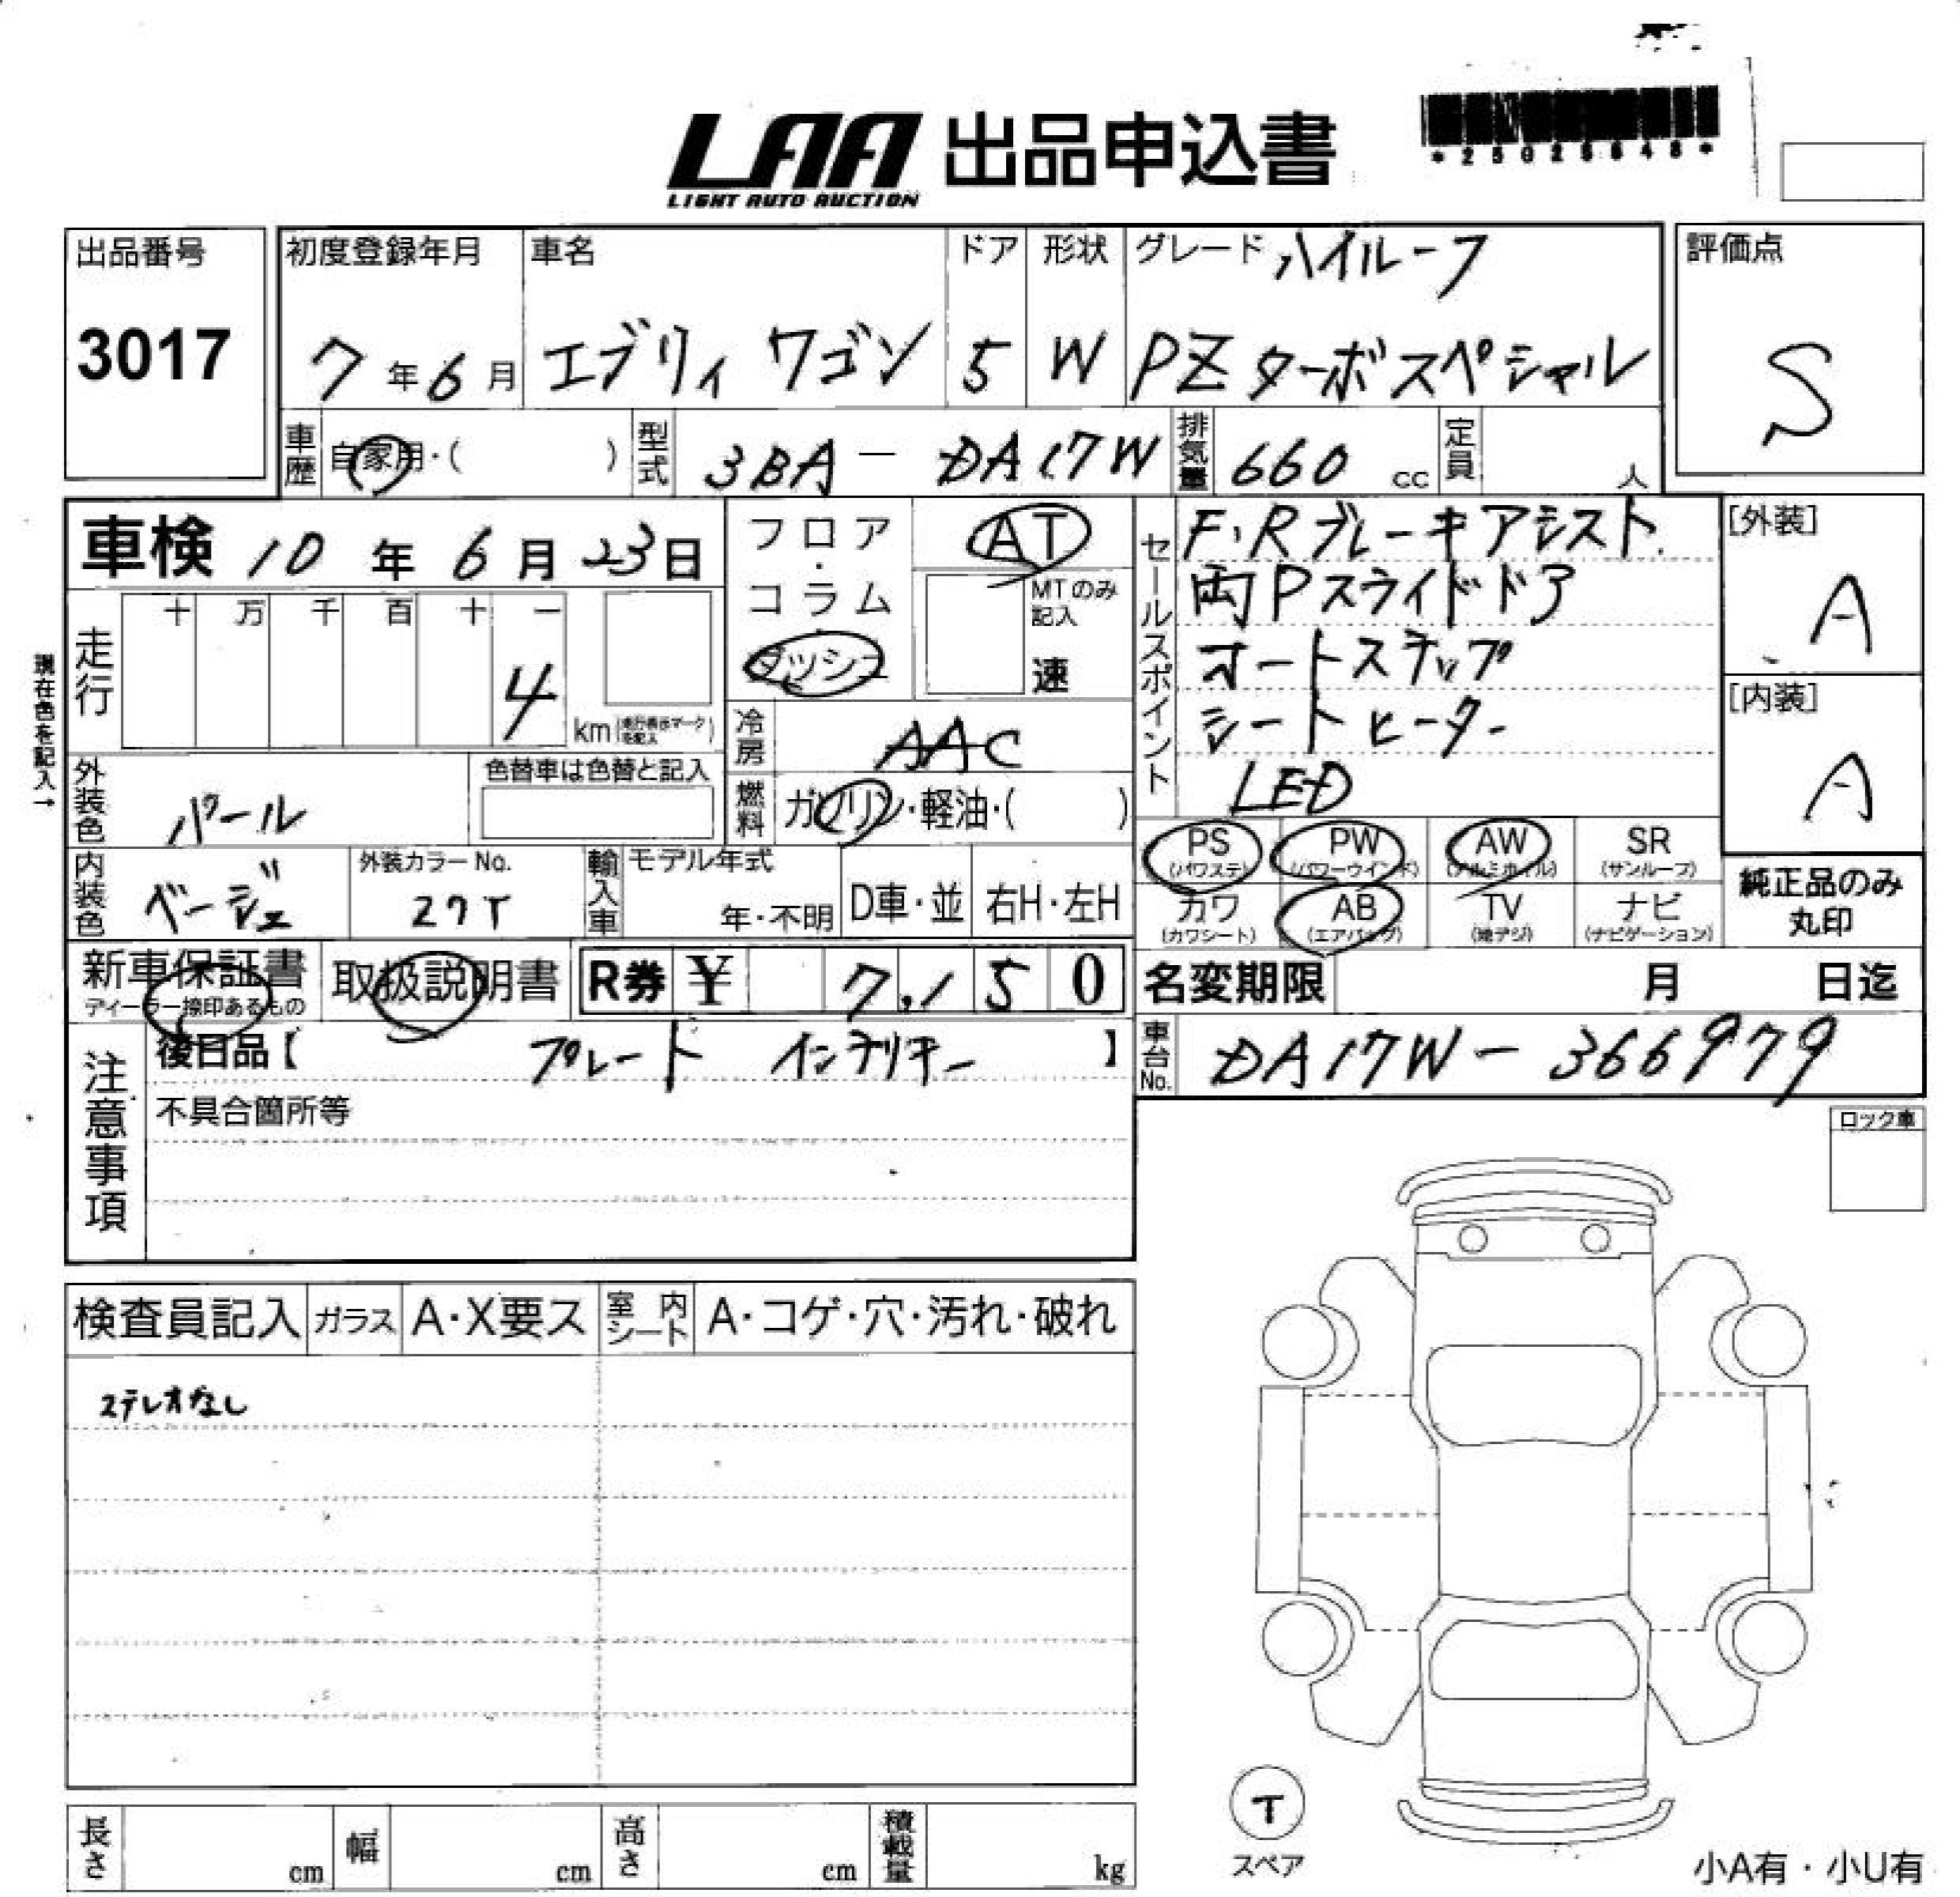 LAA 出品申込書
LIGHT AUTO AUCTION
出品番号
3017
初度登録年月
7年6月
車名
エブリィ ワゴン
ドア
5
形状
W
グレード ハイルーフ
PZターボスペシャル
評価点
S
車歴
自家用・( )
型式
3BA-DA17W
排気量
660 cc
定員
人
車検 10年6月23日
現在色を記入→
走行
十 万 千 百 十 一
4
km
フロア・コラム
ダッシュ
AT
MTのみ記入
速
冷房
AAC
燃料
ガソリン・軽油・( )
外装色
パール
色替車は色替と記入
内装色
ベージュ
外装カラーNo.
Z7T
輸入車
モデル年式
年・不明
D車・並
右H・左H
セールスポイント
F・Rブレーキアシスト
両Pスライドドア
オートステップ
シートヒーター
LED
[外装]
A
[内装]
A
PS (パワステ)
PW (パワーウインド)
AW (アルミホイル)
SR (サンルーフ)
カワ (カワシート)
AB (エアバッグ)
TV (地デジ)
ナビ (ナビゲーション)
純正品のみ
丸印
新車保証書
ディーラー捺印あるもの
取扱説明書
R券 ¥ 7,150
名変期限 月 日迄
車台No.
DA17W-366979
注意事項
後日品【 プレート インテリキー 】
不具合箇所等
ロック車
検査員記入
ガラス
A・X要ス
室内シート
A・コゲ・穴・汚れ・破れ
ステレオなし
長さ cm
幅 cm
高さ cm
積載量 kg
T
スペア
小A有・小U有